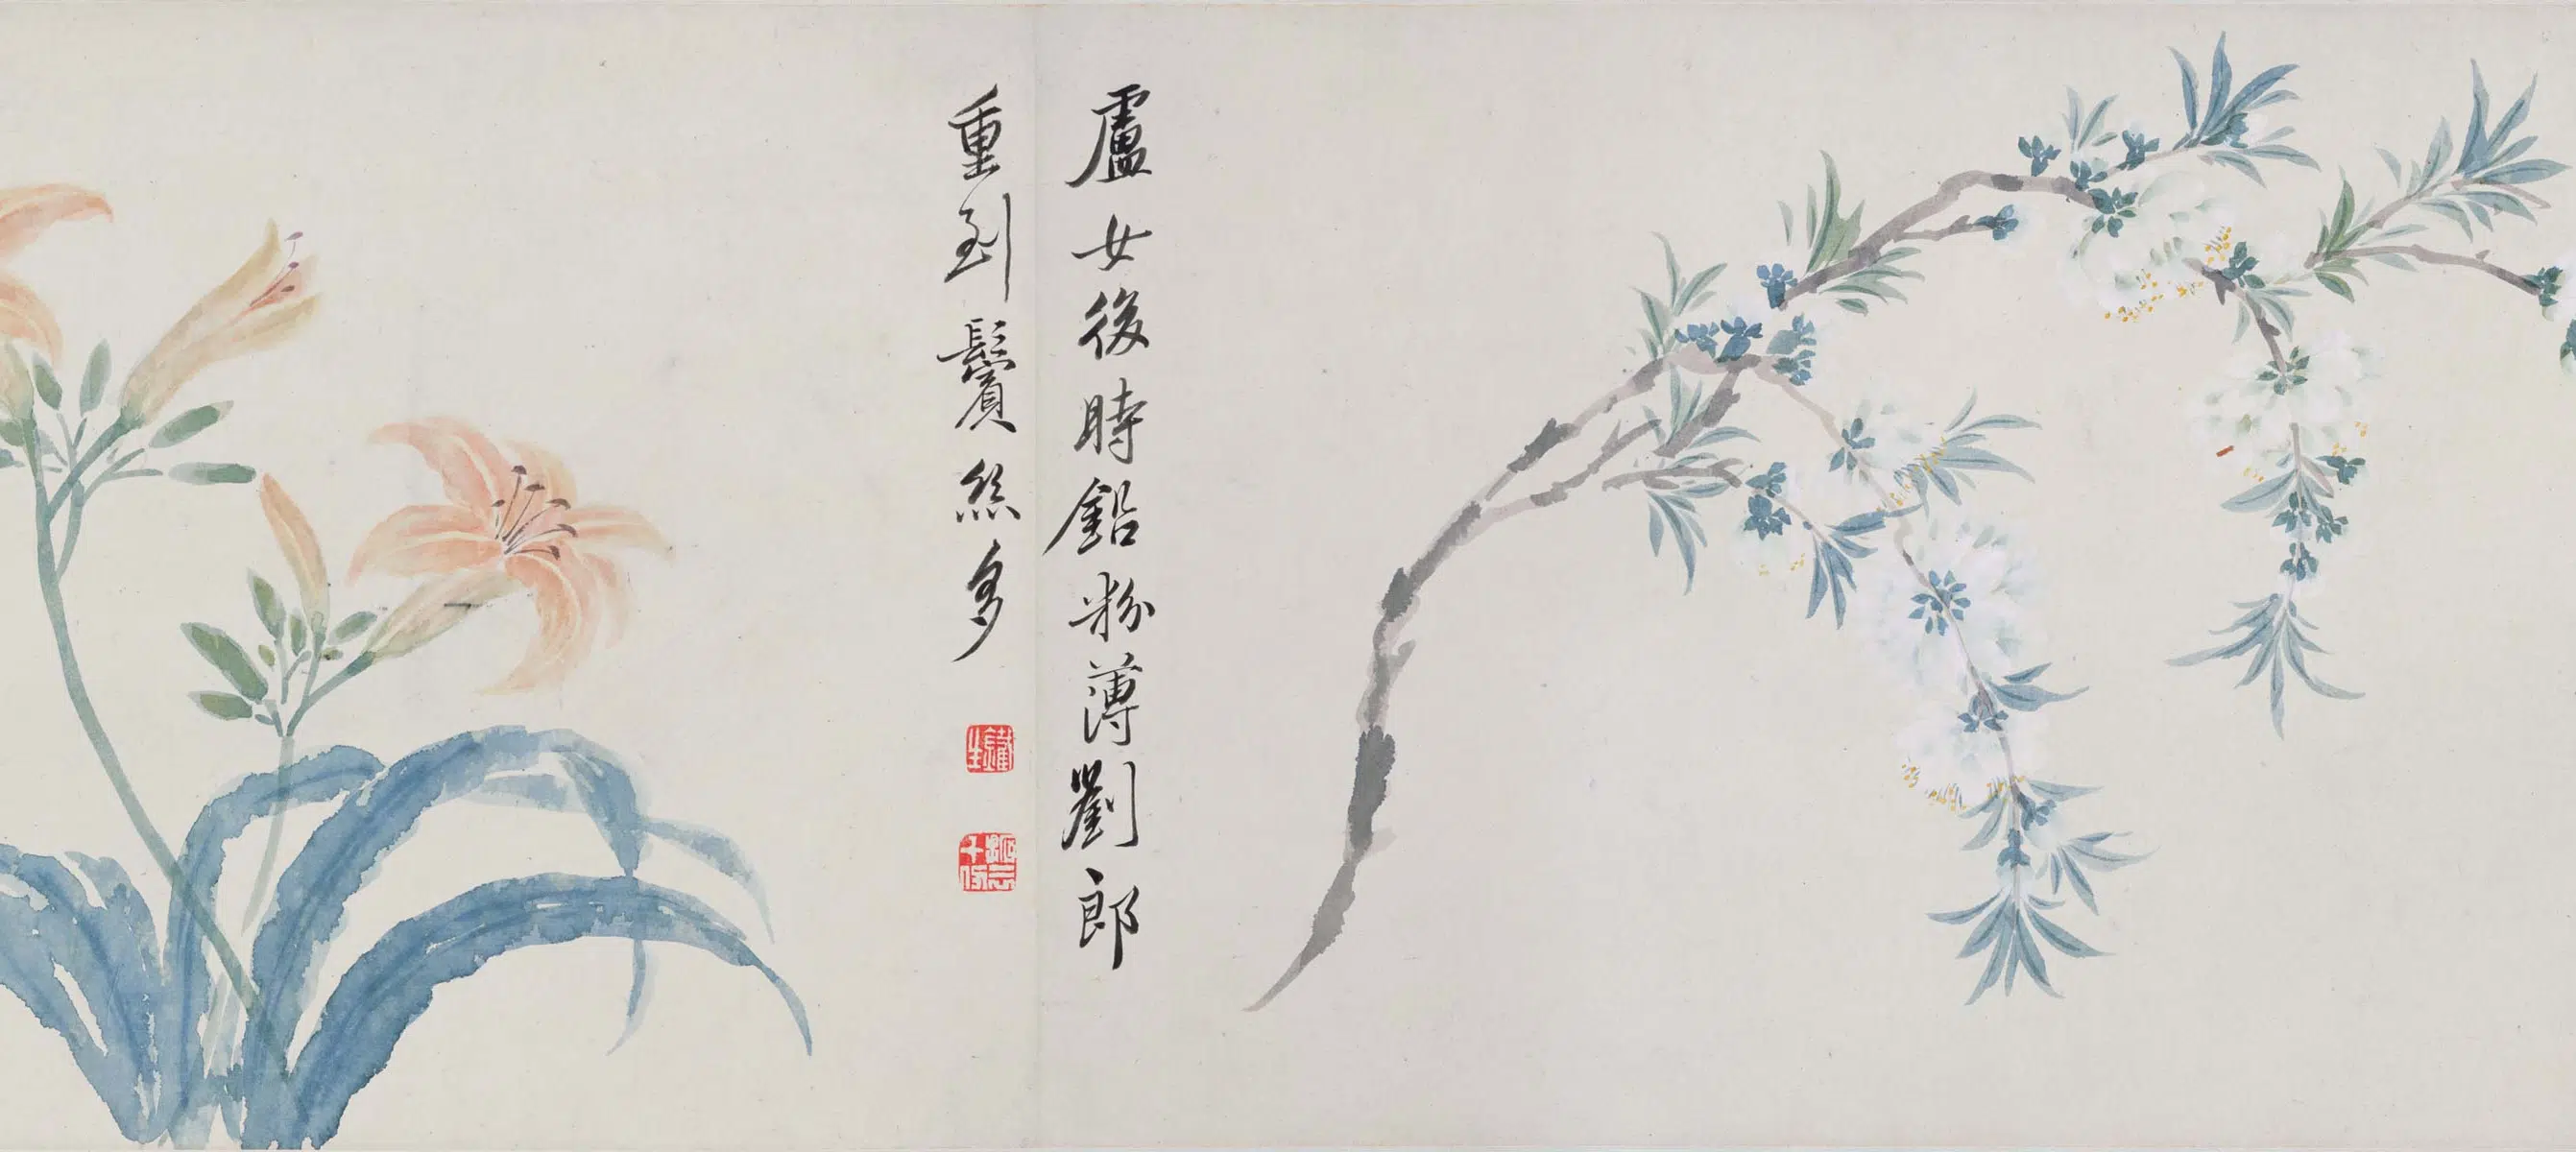 盧女後時鉛粉薄劉郎
重到鬢絲多